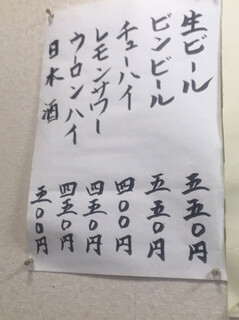 生ビール 五五〇円
ビンビール 五五〇円
チューハイ 四〇〇円
レモンサワー 四五〇円
ウーロンハイ 四五〇円
日本酒 五〇〇円